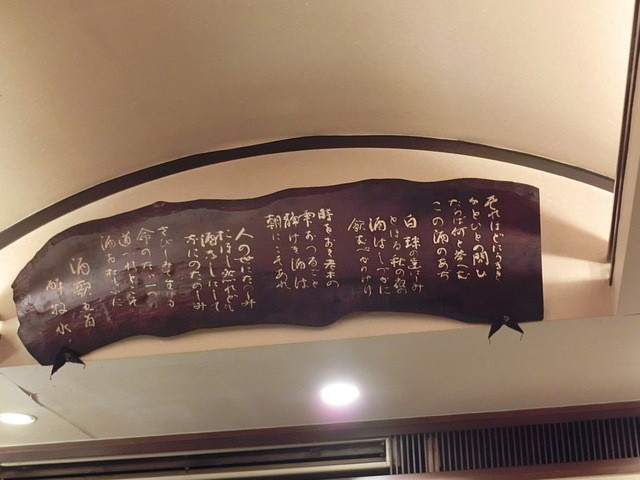 それほどにうまき
かとひとの問ひ
たらば何と答へむ
この酒のあぢ
白珠の歯にしみ
とほる秋の夜の
酒はしづかに
飲むべかりけり
時をおき老木の
雫おつるごと
静けき酒は
朝にこそあれ
人の世にたのしみ
おほし然れども
酒なしにして
なにのたのしみ
さびしみて生ける
命のただ一つの
道づれとこそ
酒をおもふに
酒歌五首
水